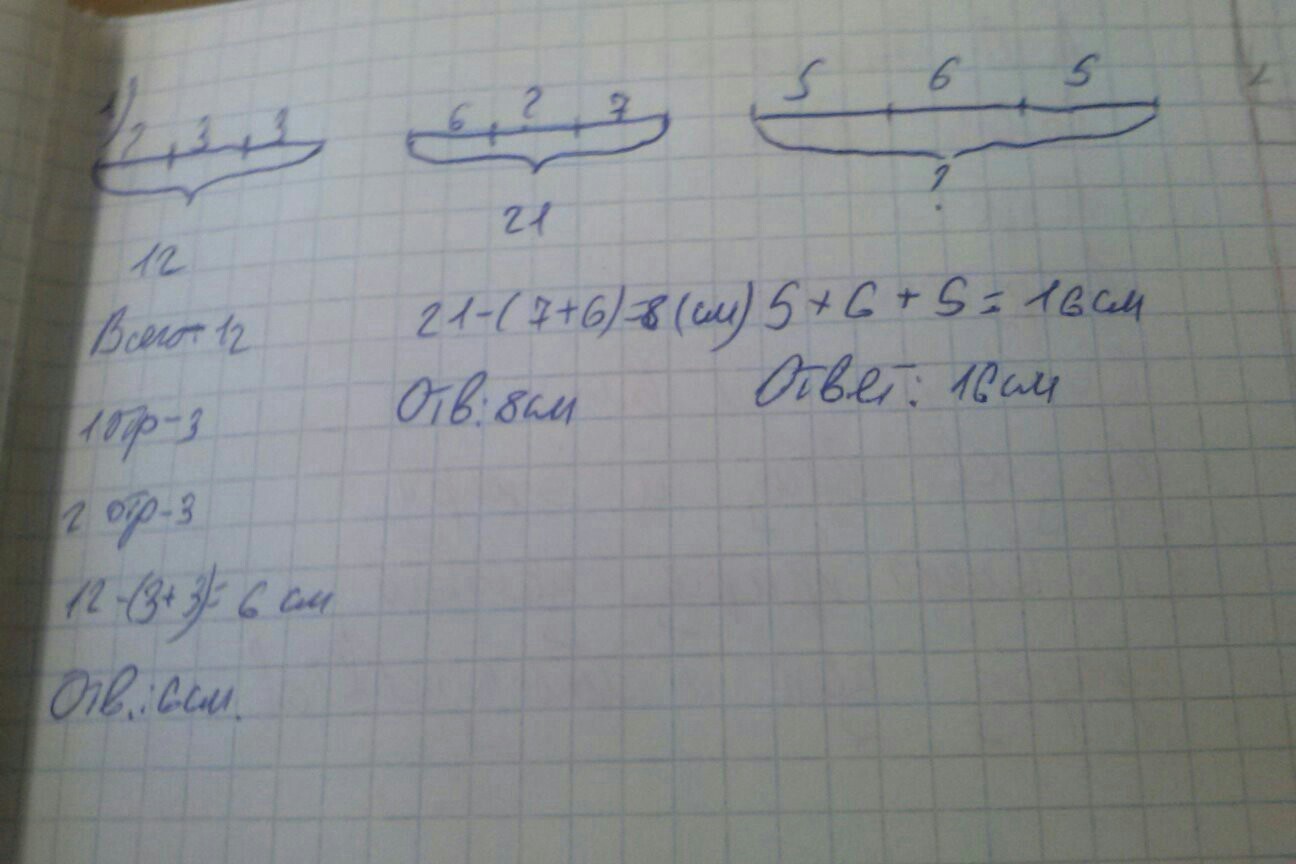 1)
? 3 3
12
Всего - 12
1 отр - 3
2 отр - 3
12 - (3 + 3) = 6 см
Отв.: 6 см.
6 ? 7
21
21 - (7 + 6) = 8 (см)
Отв: 8 см
5 6 5
?
5 + 6 + 5 = 16 см
Ответ: 16 см